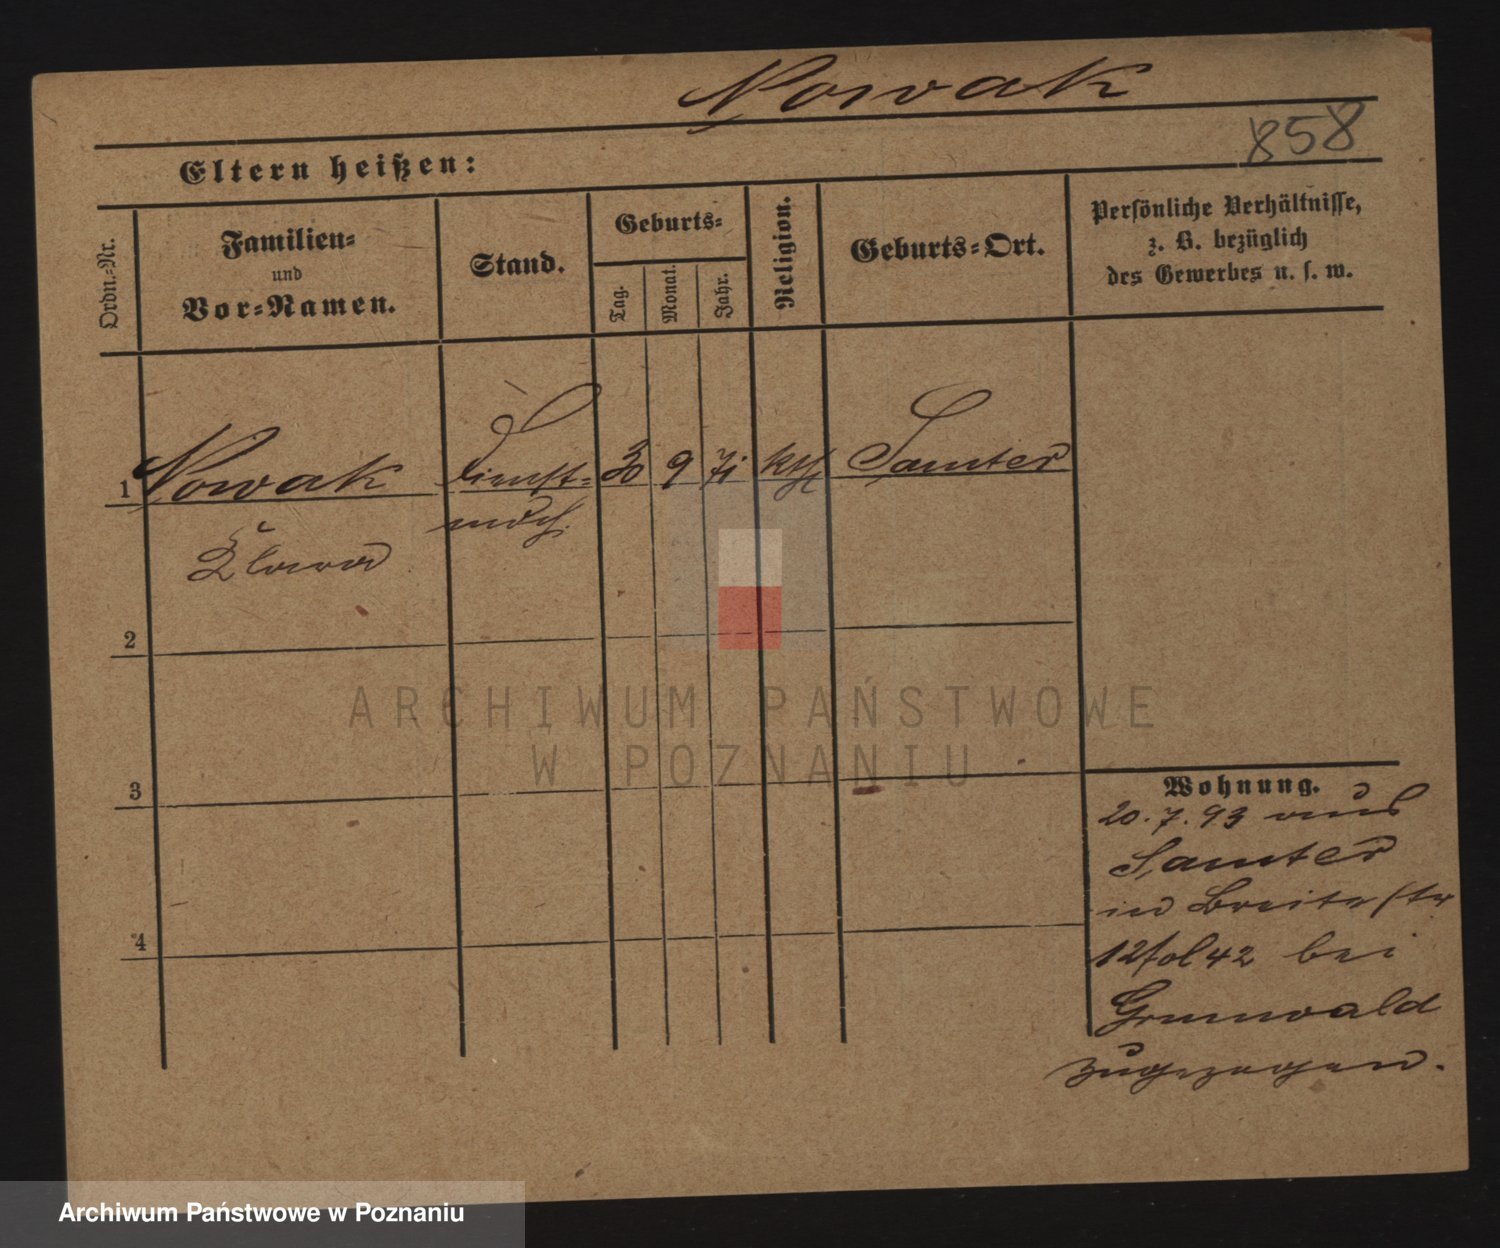 Nowak
858
Eltern heißen:
Ordn.-Nr.
Familien-
und
Vor-Namen.
Stand.
Geburts-
Tag.
Monat.
Jahr.
Religion.
Geburts-Ort.
Persönliche Verhältnisse,
z. B. bezüglich
des Gewerbes u. s. w.
1 Nowak Dienst- 30 9 71 kth Samter
mdch.
Klara
2
3
4
Wohnung.
20.7.93 aus
Samter
in Breitestr
12 fol 42 bei
Grunwald
zugezogen.
ARCHIWUM PAŃSTWOWE
W POZNANIU
Archiwum Państwowe w Poznaniu